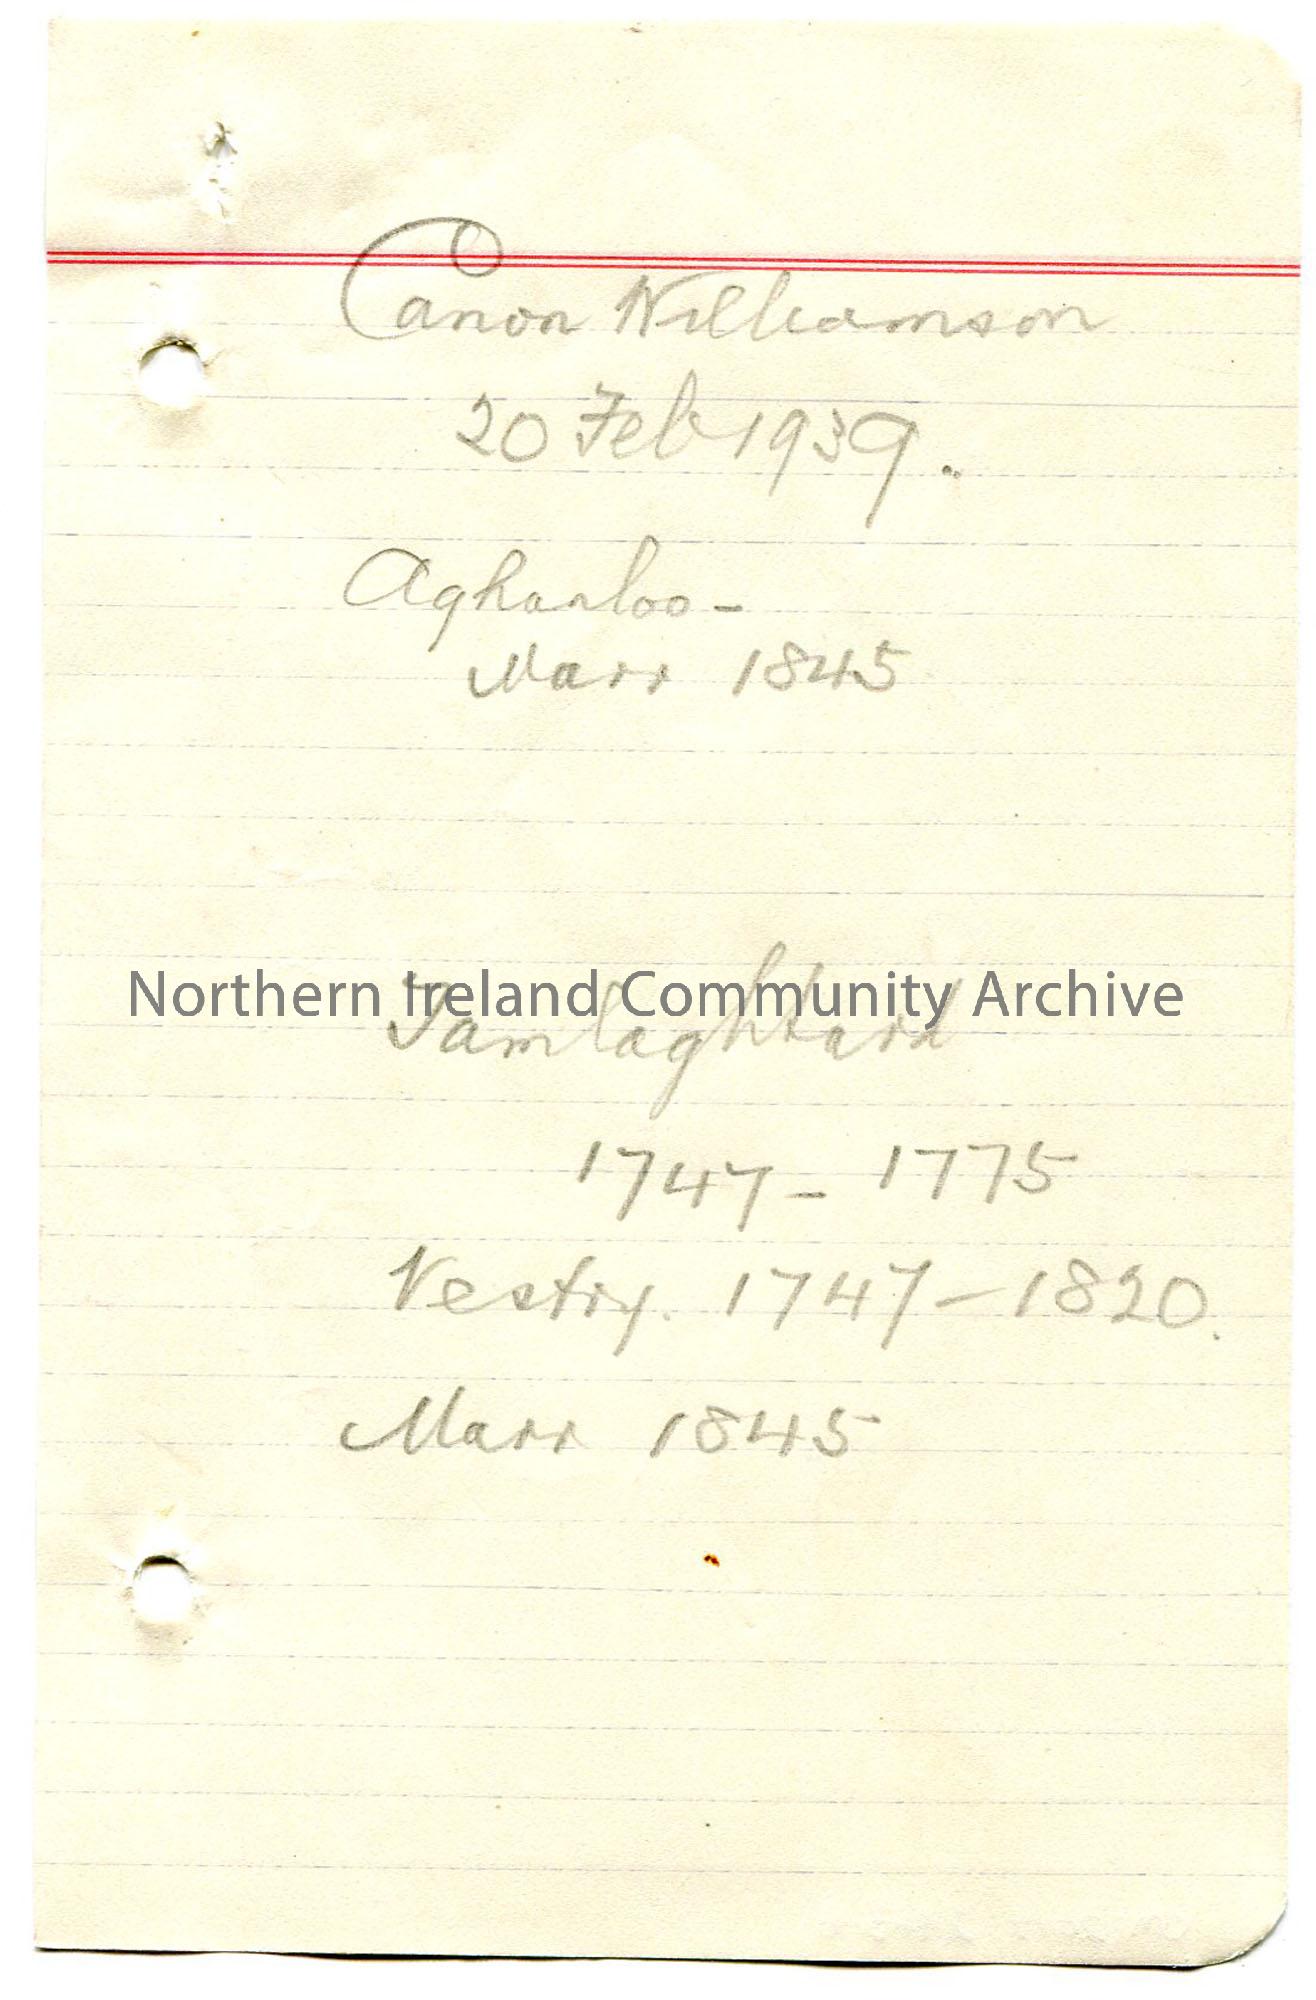 Canon Williamson
20 Feb 1939.
Aghanloo -
Marr 1845
Northern Ireland Community Archive
Tamlaghtard
1747 - 1775
Vestry. 1747 - 1820.
Marr 1845